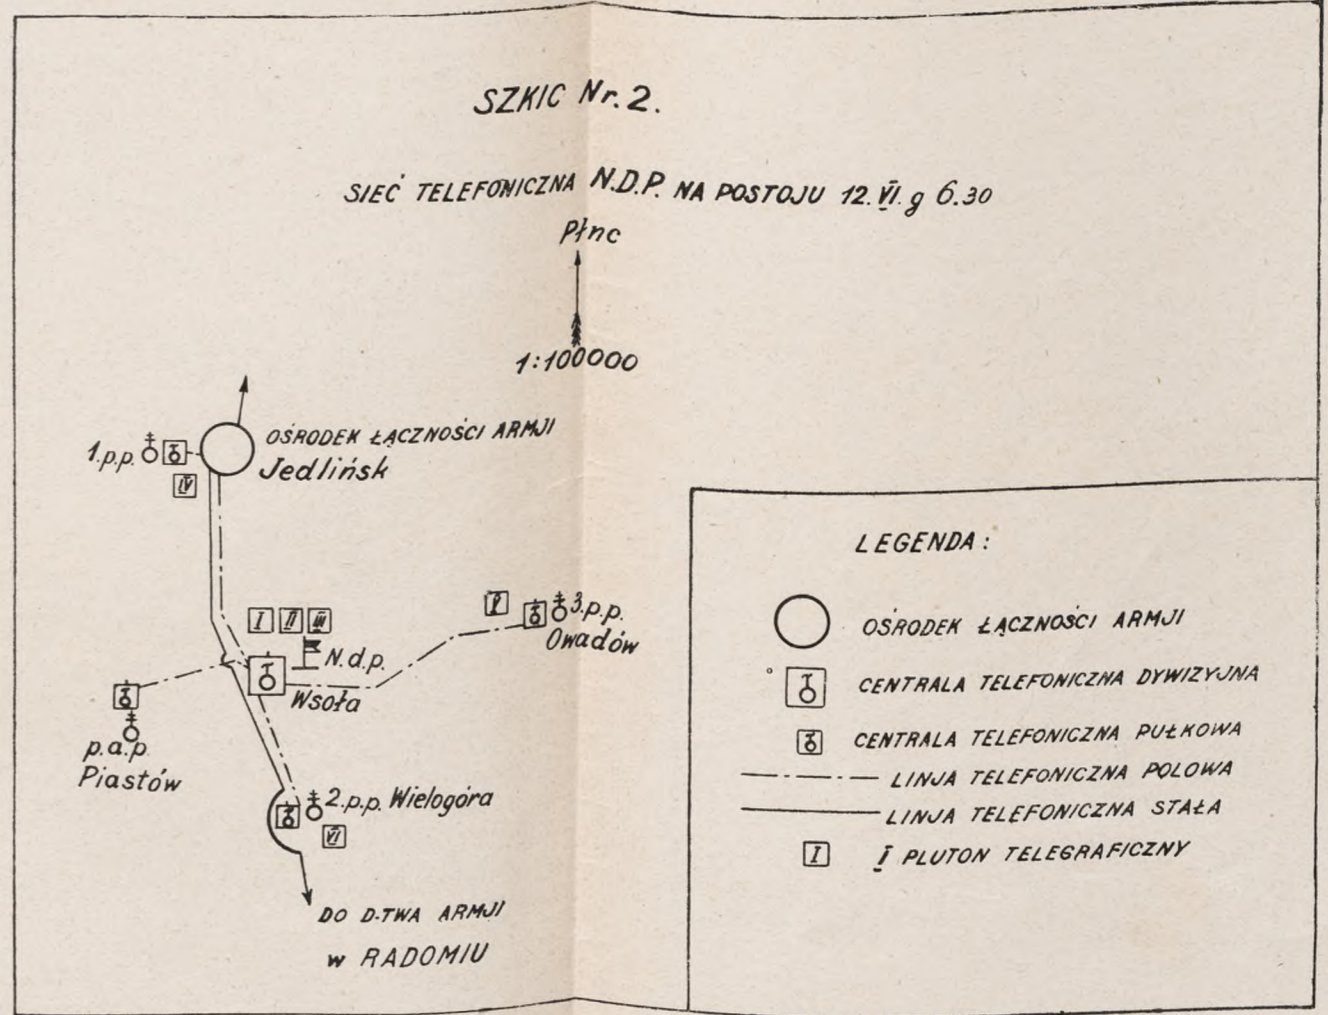 SZKIC Nr. 2.
SIEĆ TELEFONICZNA N.D.P. NA POSTOJU 12. VI. g 6.30
Płnc
1:100000
OŚRODEK ŁĄCZNOŚCI ARMJI
1.p.p.
Jedlińsk
IV
I II III
3.p.p.
Owadów
N.d.p.
Wsoła
p.a.p.
Piastów
2.p.p. Wielogóra
VI
DO D-TWA ARMJI
w RADOMIU
LEGENDA:
OŚRODEK ŁĄCZNOŚCI ARMJI
CENTRALA TELEFONICZNA DYWIZYJNA
CENTRALA TELEFONICZNA PUŁKOWA
LINJA TELEFONICZNA POLOWA
LINJA TELEFONICZNA STAŁA
I I PLUTON TELEGRAFICZNY